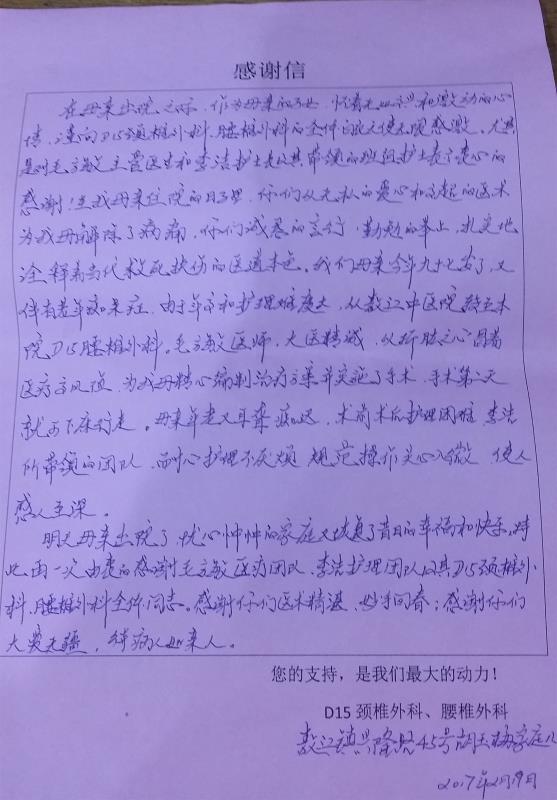 感谢信
在母亲出院之际，作为母亲的子女，怀着无比崇敬和激动的心
情，谨向D15颈椎外科、腰椎外科的全体白衣天使表示感激。尤其
是对毛方敏主管医生和李洁护士长及其带领的班组护士表示衷心的
感谢！在我母亲住院的日子里，你们从无私的爱心和高超的医术
为我母解除了病痛，你们诚恳的言行，勤勉的举止，扎实地
诠释着当代救死扶伤的医道本色。我们母亲今年九十七岁了，又
伴有老年痴呆症，由于年高和护理难度大，从敖江中医院转至本
院D15腰椎外科。毛方敏医师，大医精诚，以肝胆之心冒着
医疗高风险，为我母精心编制治疗方案并实施了手术，手术第二天
就可下床行走。母亲年老又耳聋痴呆，术前术后护理困难，李洁
所带领的团队，耐心护理不厌烦，规范操作关心入微，使人
感人至深。
明天母亲出院了，忧心忡忡的家庭又恢复了昔日的幸福和快乐。特
此再一次由衷的感谢毛方敏医疗团队、李洁护理团队以及其D15颈椎外
科、腰椎外科全体同志。感谢你们医术精湛，妙手回春；感谢你们
大爱无疆，待病人如亲人。
您的支持，是我们最大的动力！
D15 颈椎外科、腰椎外科
敖江镇兴隆路45号胡玉梅家庭
2017年2月19日